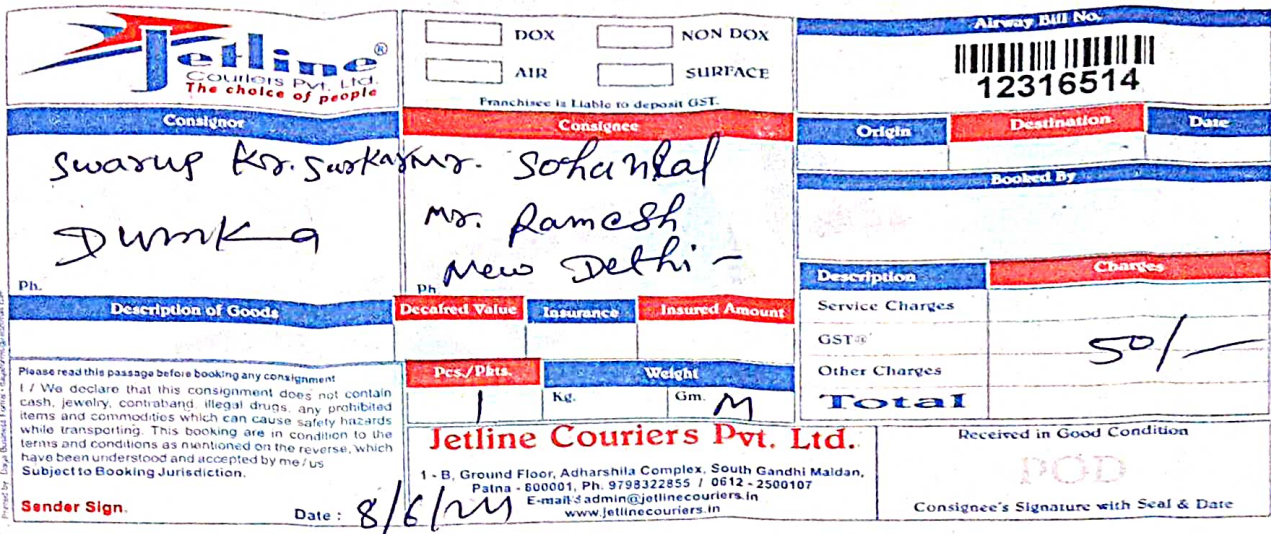 Jetline®
Couriers Pvt. Ltd.
The choice of people
DOX
NON DOX
AIR
SURFACE
Franchisee is Liable to deposit GST.
Airway Bill No.
12316514
Consignor
Consignee
Origin
Destination
Date
Swarup Kr. Sarkar
Mr. Sohanlal
Dumka
Mr. Ramesh
New Delhi -
Ph.
Ph
Booked By
Description
Charges
Service Charges
GST@
50/-
Other Charges
Total
Description of Goods
Decalred Value
Insurance
Insured Amount
Pcs./Pkts.
Weight
1
Kg.
Gm.
M
Please read this passage before booking any consignment
I / We declare that this consignment does not contain
cash, jewelry, contraband, illegal drugs, any prohibited
items and commodities which can cause safety hazards
while transporting. This booking are in condition to the
terms and conditions as mentioned on the reverse, which
have been understood and accepted by me / us
Subject to Booking Jurisdiction.
Sender Sign.
Date : 8/6/24
Jetline Couriers Pvt. Ltd.
1 - B, Ground Floor, Adharshila Complex, South Gandhi Maidan,
Patna - 800001, Ph. 9798322855 / 0612 - 2500107
E-mail : admin@jetlinecouriers.in
www.jetlinecouriers.in
Received in Good Condition
POD
Consignee's Signature with Seal & Date